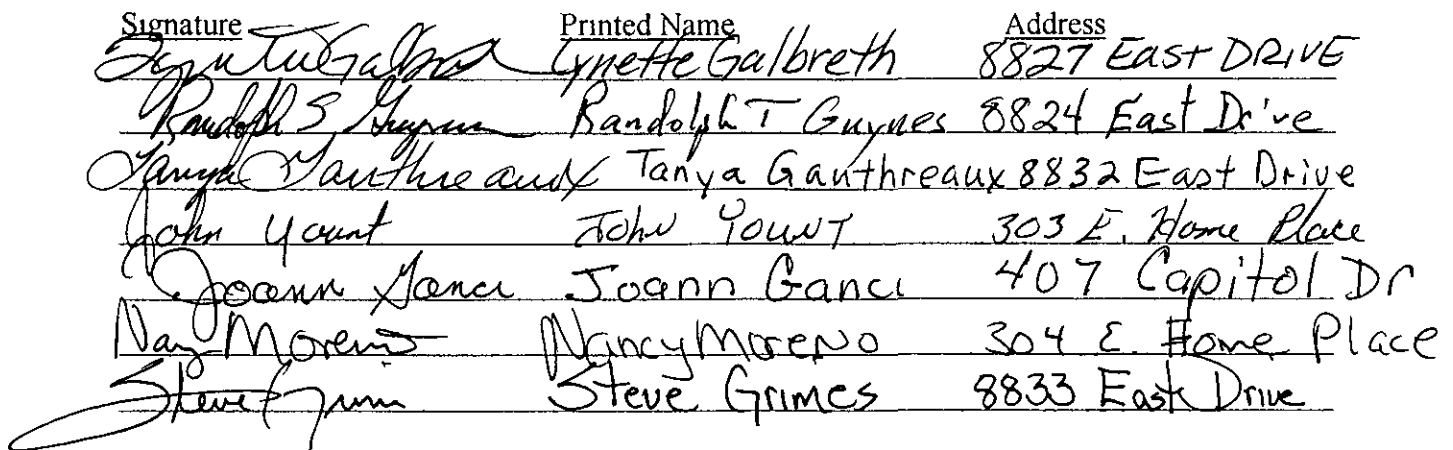 Signature Printed Name Address
Lynette Galbreth 8827 East DRIVE
Randolph S. Randolph T Guynes 8824 East Drive
Tanya Gauthreaux Tanya Gauthreaux 8832 East Drive
John Yount John Yount 303 E. Home Place
Joann Ganci Joann Ganci 407 Capitol Dr
Nay Moreno Nancy Moreno 304 E. Home Place
Steve Steve Grimes 8833 East Drive